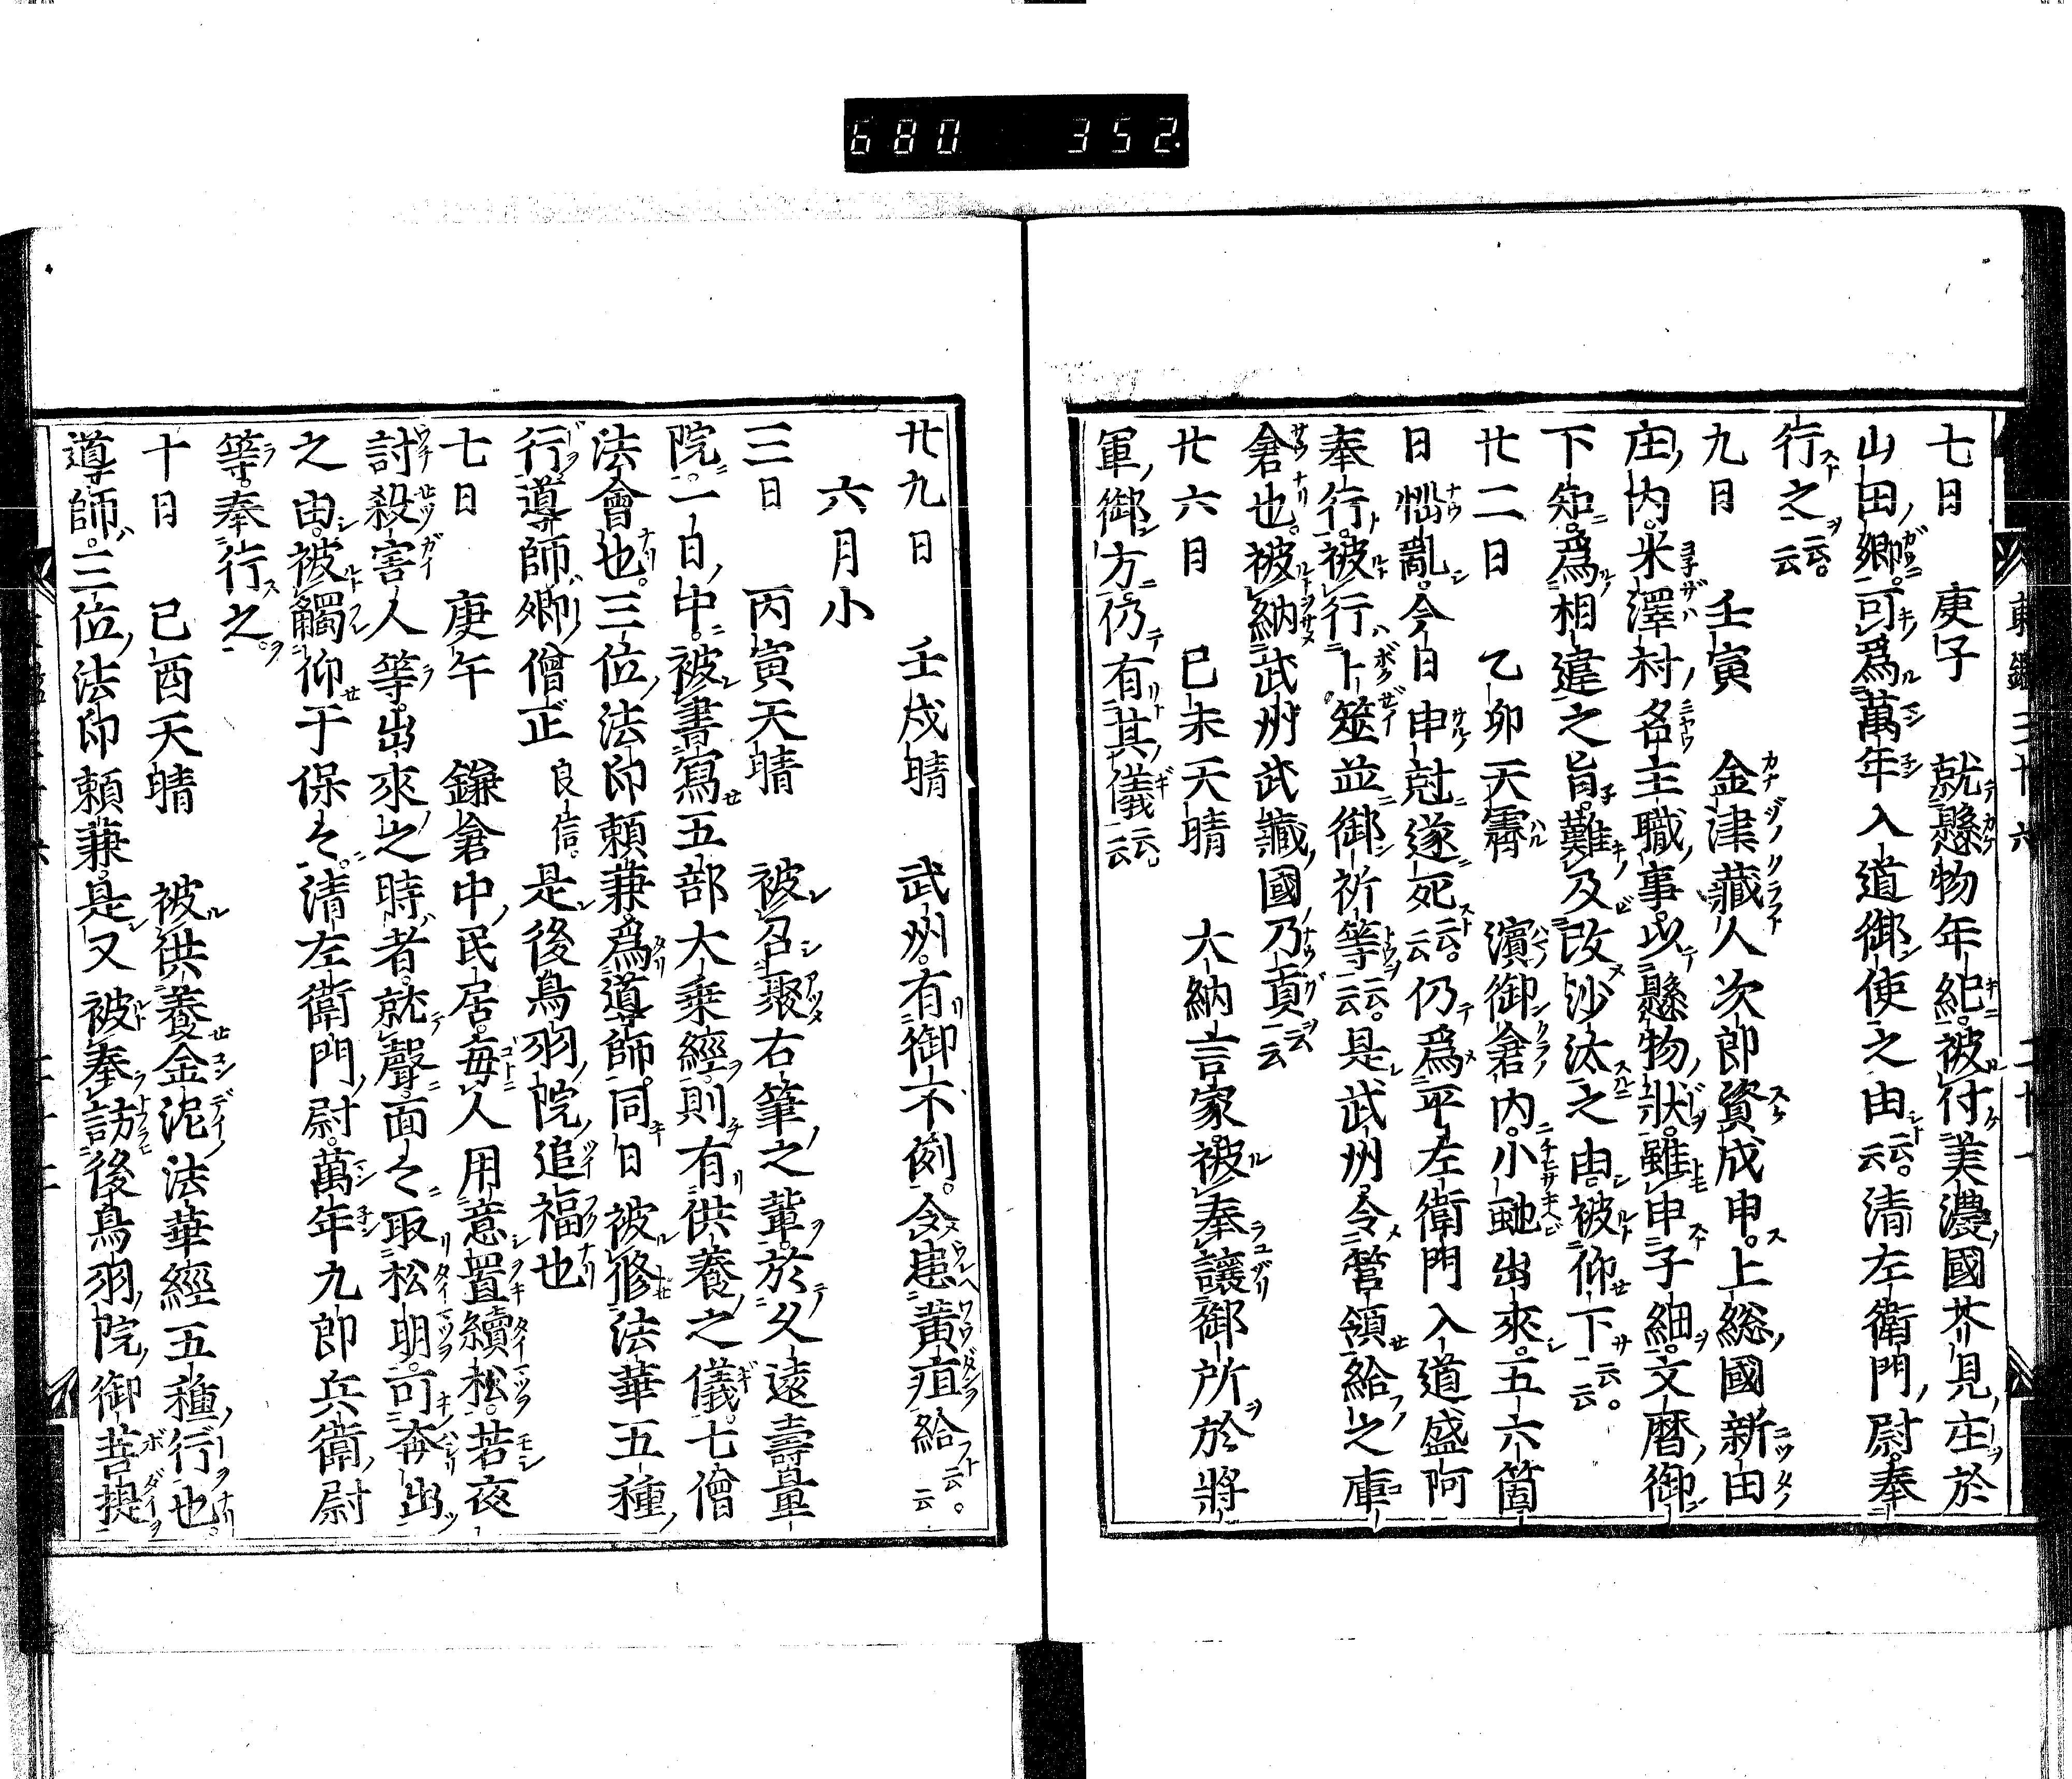 680 352.
七日 庚子 就懸物年紀。被付美濃國芥見庄於
山田郷。可爲萬年入道御使之由云云。清左衛門尉奉
行之云云。
九日 壬寅 金津藏人次郎資成申。上総國新田
庄内。米澤村名主職事。以懸物狀。雖申子細。文暦御
下知。爲相違之旨。難及改沙汰之由。被仰下云云。
廿二日 乙卯天霽 濱御倉内。小虵出來。五六箇
日惱亂。今日申尅遂死云云。仍爲平左衛門入道盛阿
奉行。被行卜筮並御祈等云云。是武州令管領給之庫
倉也。被納武州武藏國乃貢云云
廿六日 己未天晴 大納言家被奉讓御所於將
軍御方。仍有其儀云云。
廿九日 壬戌晴 武州。有御不例。令患黄疸給云云。
六月小
三日 丙寅天晴 被召聚右筆之輩。於久遠壽量
院。一日中。被書寫五部大乗經。則有供養之儀。七僧
法會也。三位法印頼兼。爲導師。同日被修法華五種
行。導師卿僧正良信。是後鳥羽院追福也
七日 庚午 鎌倉中民居。毎人用意置續松。若夜
討殺害人等。出來之時者。就聲。面々取松明。可奔出
之由。被觸仰于保々。清左衛門尉。萬年九郎兵衛尉
等。奉行之。
十日 己酉天晴 被供養金泥法華經五種行也。
導師。三位法印頼兼。是又被奉訪後鳥羽院御菩提